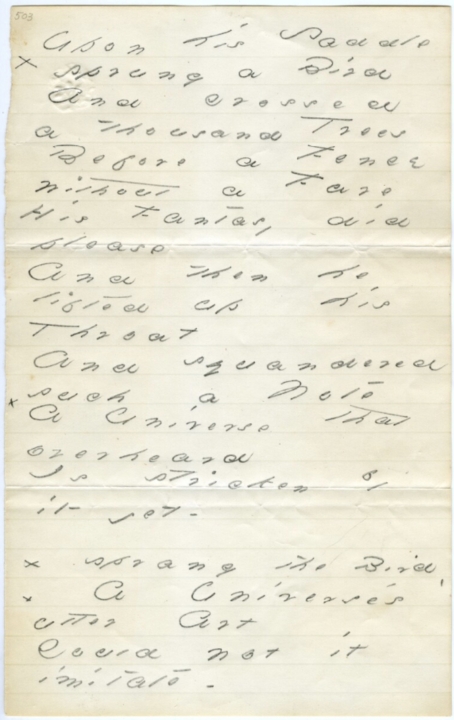 503
Upon his Saddle
x sprung a Bird
And crossed
a thousand Trees
Before a Fence
without a Fare
His Fantasy did
please
And then he
lifted up his
Throat
And squandered
such a Note
x A Universe that
overheard
Is stricken by
it yet -
x sprang the Bird,
x A Universe's
utter Art
Could not it
imitate -